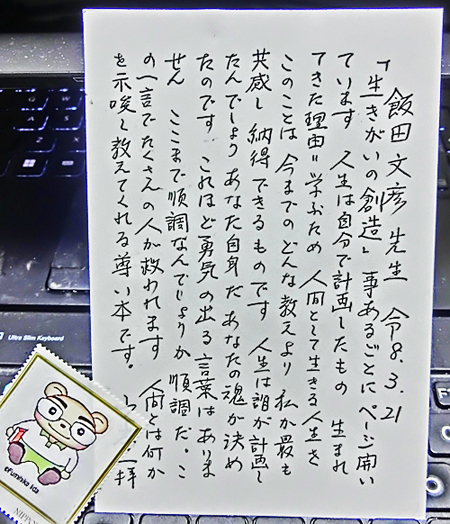 飯田文彦先生 令8.3.21
「生きがいの創造」事あるごとにページ開い
ています 人生は自分で計画したもの 生まれ
てきた理由=学ぶため 人间として生きる人生を
このことは 今までのどんな教えより 私が最も
共感し 納得できるものです 人生は誰が計画し
たんでしょう あなた自身だ あなたの魂が決め
たのです これほど勇気の出る言葉はありま
せん ここまで順調なんでしょうか 順調だ。こ
の一言でたくさんの人が救われます 人间とは何か
を示唆し教えてくれる尊い本です。 拝
Ultra Slim Keyboard